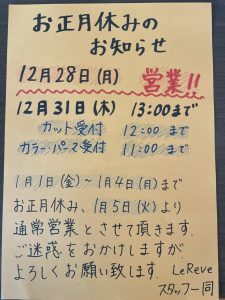 お正月休みの
お知らせ
12月28日(月) 営業!!
12月31日(木) 13:00まで
カット受付 12:00まで
カラー・パーマ受付 11:00まで
1月1日(金)～1月4日(月)まで
お正月休み、1月5日(火)より
通常営業とさせて頂きます。
ご迷惑をおかけしますが
よろしくお願い致します。
LeReve
スタッフ一同